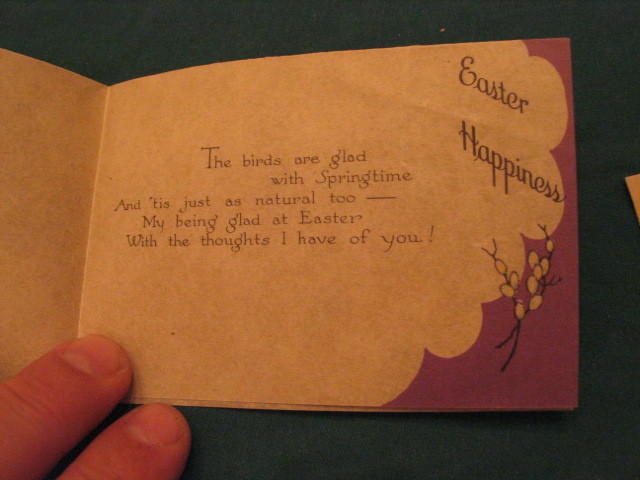 Easter
Happiness
The birds are glad
with Springtime
And 'tis just as natural too —
My being glad at Easter
With the thoughts I have of you!